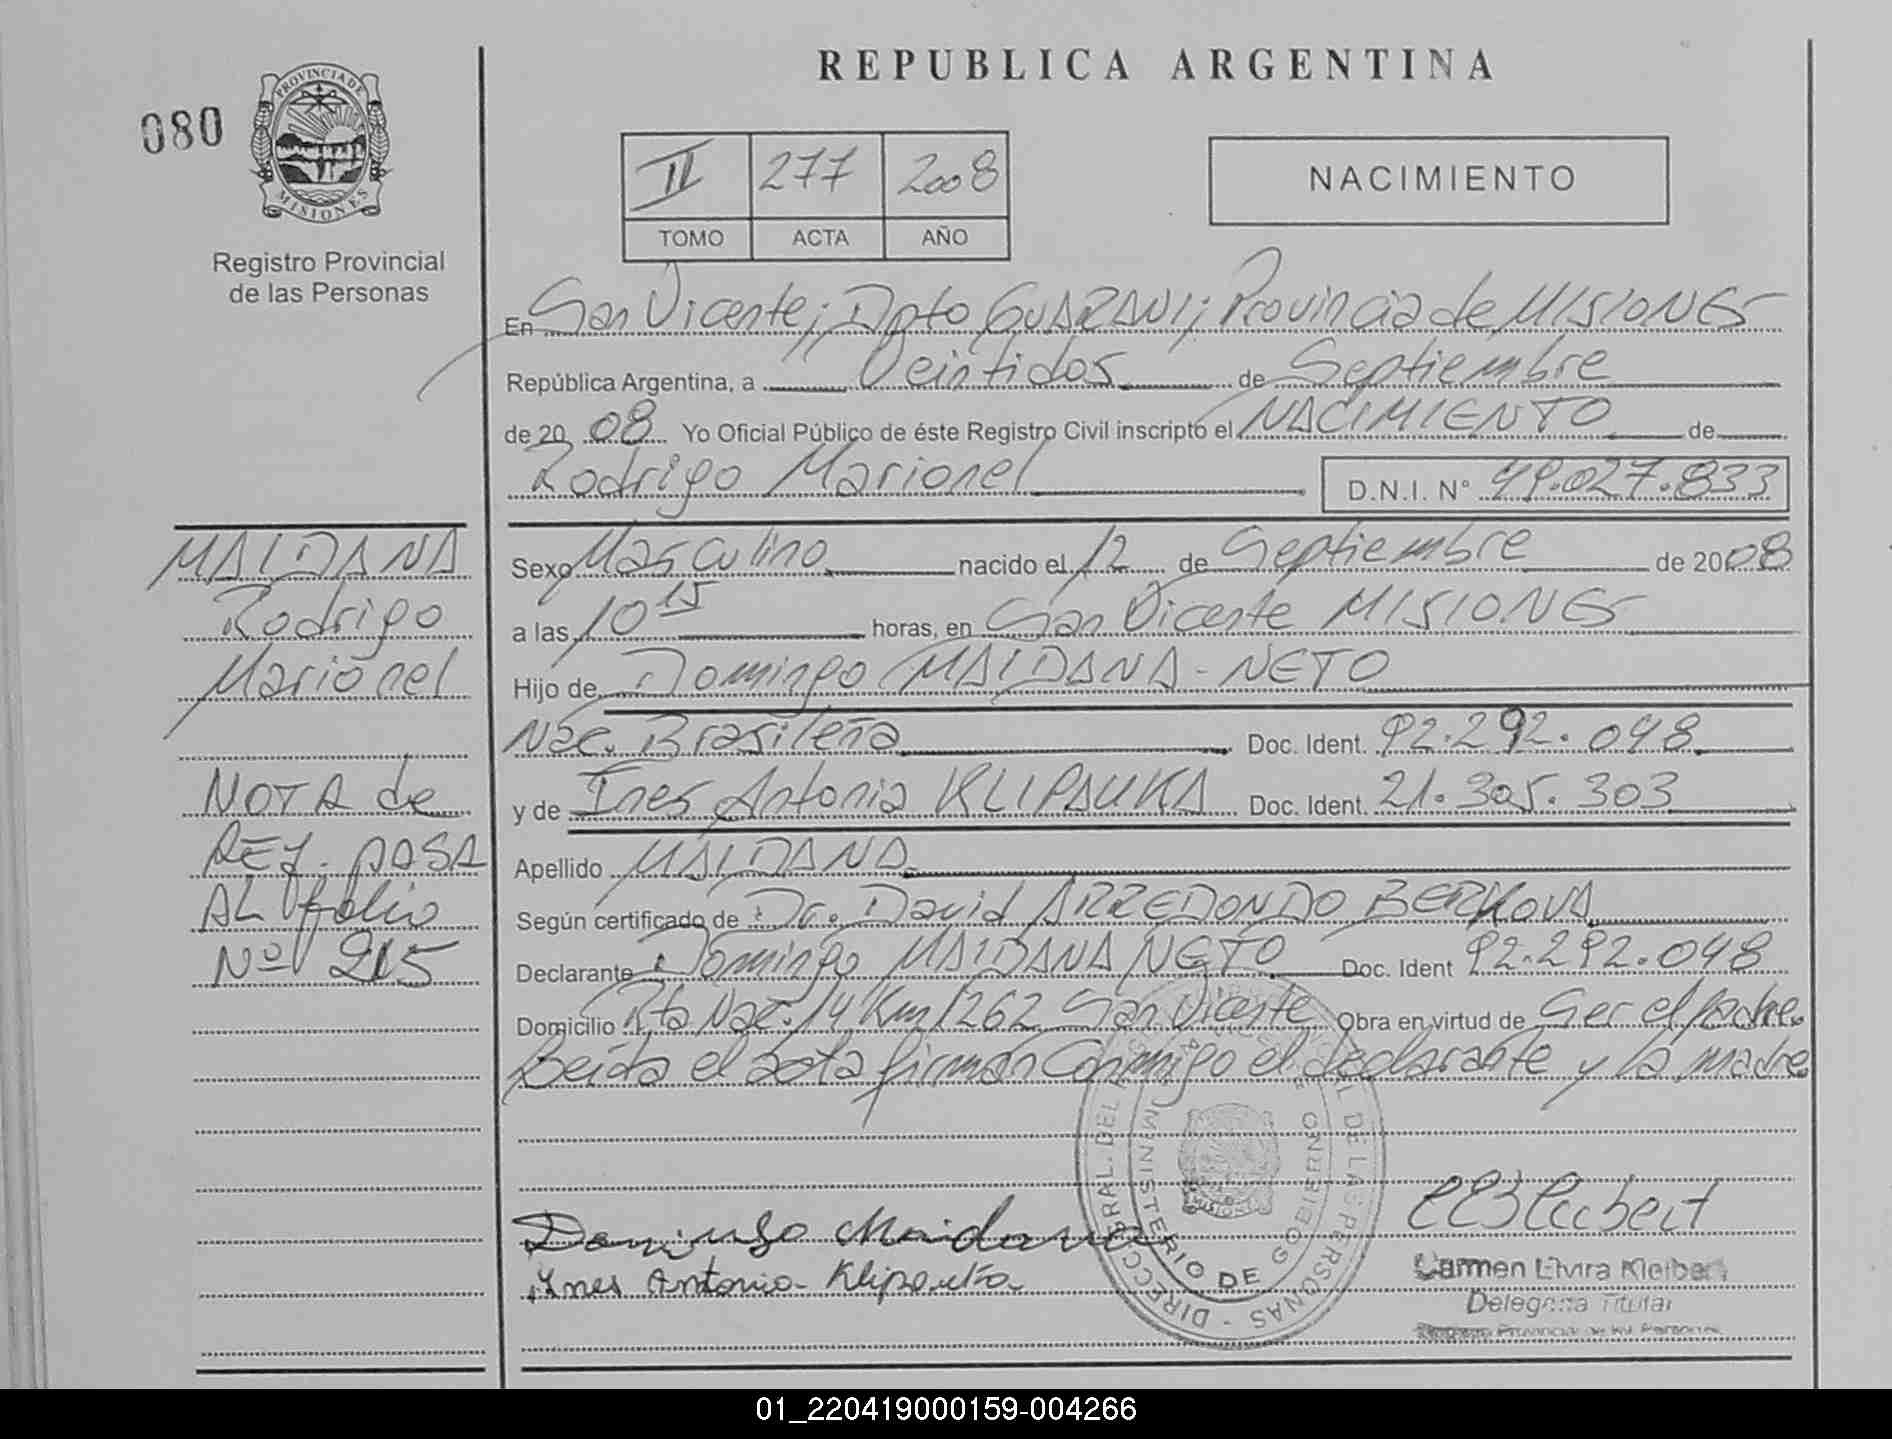 REPUBLICA ARGENTINA
080
PROVINCIA DE
MISIONES
Registro Provincial
de las Personas
II 277 2008
TOMO ACTA AÑO
NACIMIENTO
En San Vicente; Dpto GUARANI; Provincia de MISIONES
República Argentina, a Veintidos de Septiembre
de 20 08 Yo Oficial Público de éste Registro Civil inscripto el NACIMIENTO de
Rodrigo Marionel D.N.I. N° 49.027.833
Sexo Masculino nacido el 12 de Septiembre de 2008
a las 10 15 horas, en San Vicente MISIONES
Hijo de Domingo MAIDANA - NETO
Nac. Brasileña Doc. Ident. 92.292.048
y de Ines Antonia KLIPAUKA Doc. Ident. 21.305.303
Apellido MAIDANA
Según certificado de : Dr. David ARREDONDO BERKOVA
Declarante : Domingo MAIDANA NETO Doc. Ident 92.292.048
Domicilio Rta Nac. 14 Km 1262 San Vicente Obra en virtud de Ser el padre.
Leida el acta firman Conmigo el declarante y la madre
MAIDANA
Rodrigo
Marionel
NOTA de
REF. PASA
AL folio
Nº 215
Domingo Maidana
Ines Antonia Klipauka
DIRECC. GRAL. DEL DE LAS PERSONAS
MINISTERIO DE GOBIERNO
MISIONES
Carmen Elvira Kleibert
Delegada Titular
Registro Provincial de las Personas
01_220419000159-004266